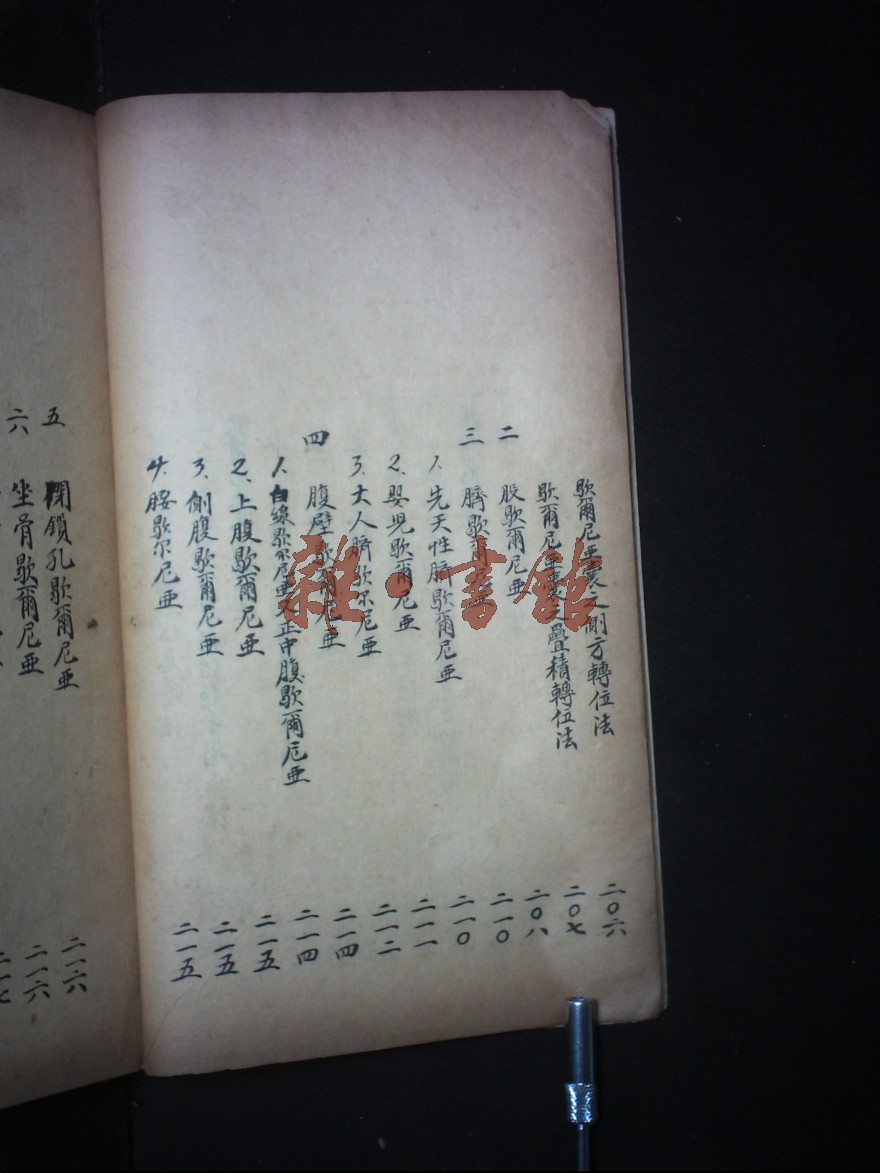 歇爾尼亜囊之側方轉位法 二〇六
歇爾尼亜囊之疊積轉位法 二〇七
二 股歇爾尼亜 二〇八
三 臍歇爾尼亜 二一〇
1. 先天性臍歇爾尼亜 二一〇
2. 嬰児歇爾尼亜 二一一
3. 大人臍歇尔尼亜 二一二
四 腹壁歇爾尼亜 二一四
1. 白線歇尔尼亜又正中腹歇爾尼亜 二一四
2. 上腹歇爾尼亜 二一五
3. 側腹歇爾尼亜 二一五
4. 腰歇尔尼亜 二一五
五 閉鎖孔歇爾尼亜 二一六
六 坐骨歇爾尼亜 二一六
雜·書館